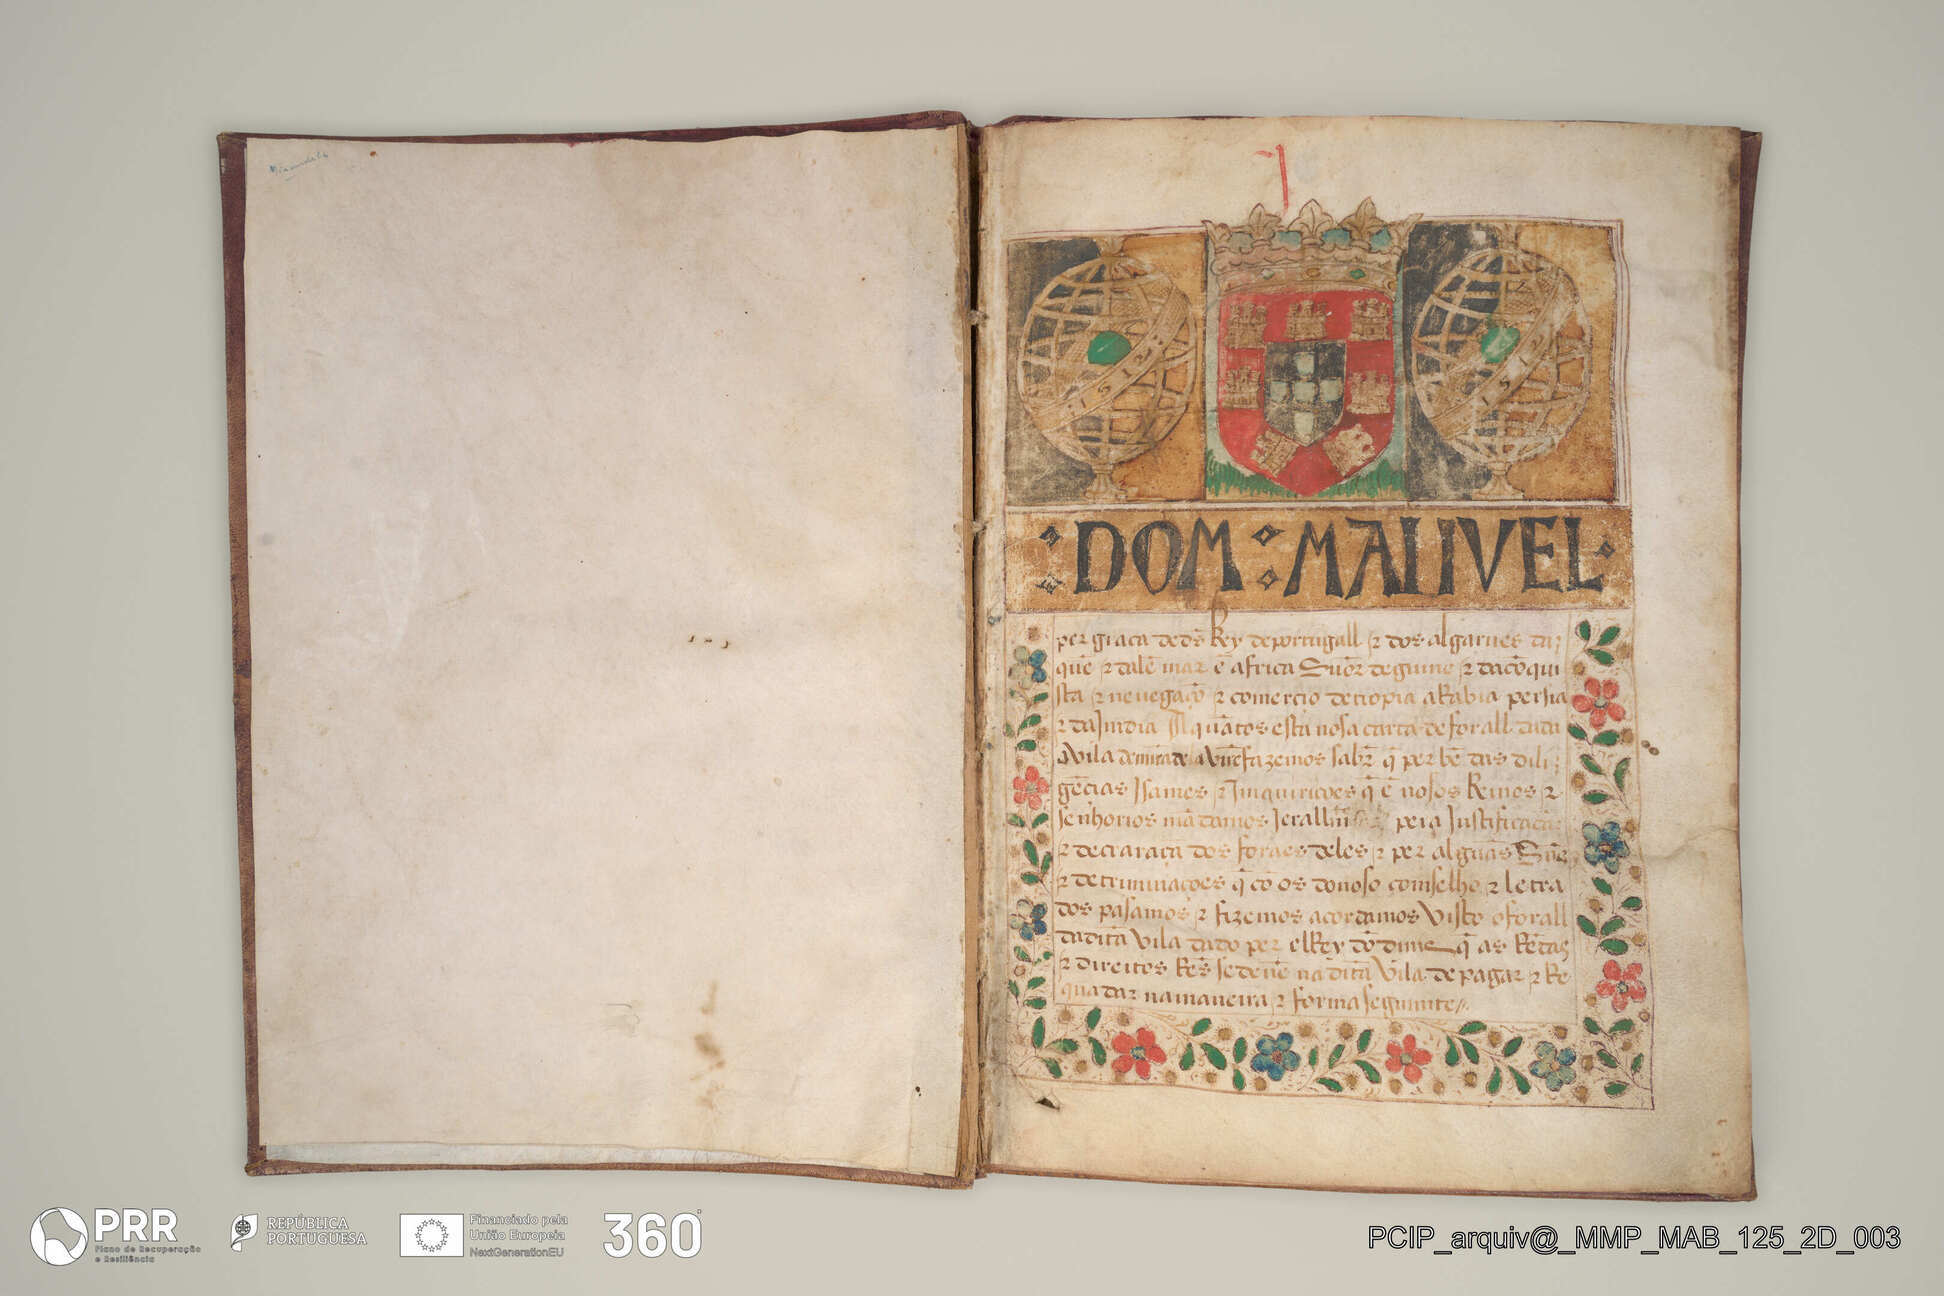 Mirandela
1512
1512
DOM MANVEL
per graca de ds Rey de portugall ⁊ dos algarues da
que ⁊ dalē mar ē africa Snōr de guine ⁊ da cōqui
sta ⁊ neuegacō ⁊ comercio de etiopia arabia persia
⁊ da Jmdia A quātos esta nosa carta de forall dada
a Vila de mirādela virē fazemos saber q̄ per bē das dili
gēcias Isames ⁊ Jmquiricoēs q̄ ē nosos Reinos ⁊
senhorios mādamos Jerallmē pera Justificaca
⁊ declaraca dos foraes deles ⁊ per algūas Snēs
⁊ detriminaçoēs q̄ cō os do noso comselho ⁊ letra
dos pasamos ⁊ fizemos acordamos Visto o forall
da dita Vila dado per elRey dō dinis q̄ as Rēdas
⁊ direitos Rēs se deuē na dita Vila de pagar ⁊ Re
quadar na maneira ⁊ forma seguimte
PRR
Plano de Recuperação
e Resiliência
REPÚBLICA
PORTUGUESA
Financiado pela
União Europeia
NextGenerationEU
360°
PCIP_arquiv@_MMP_MAB_125_2D_003